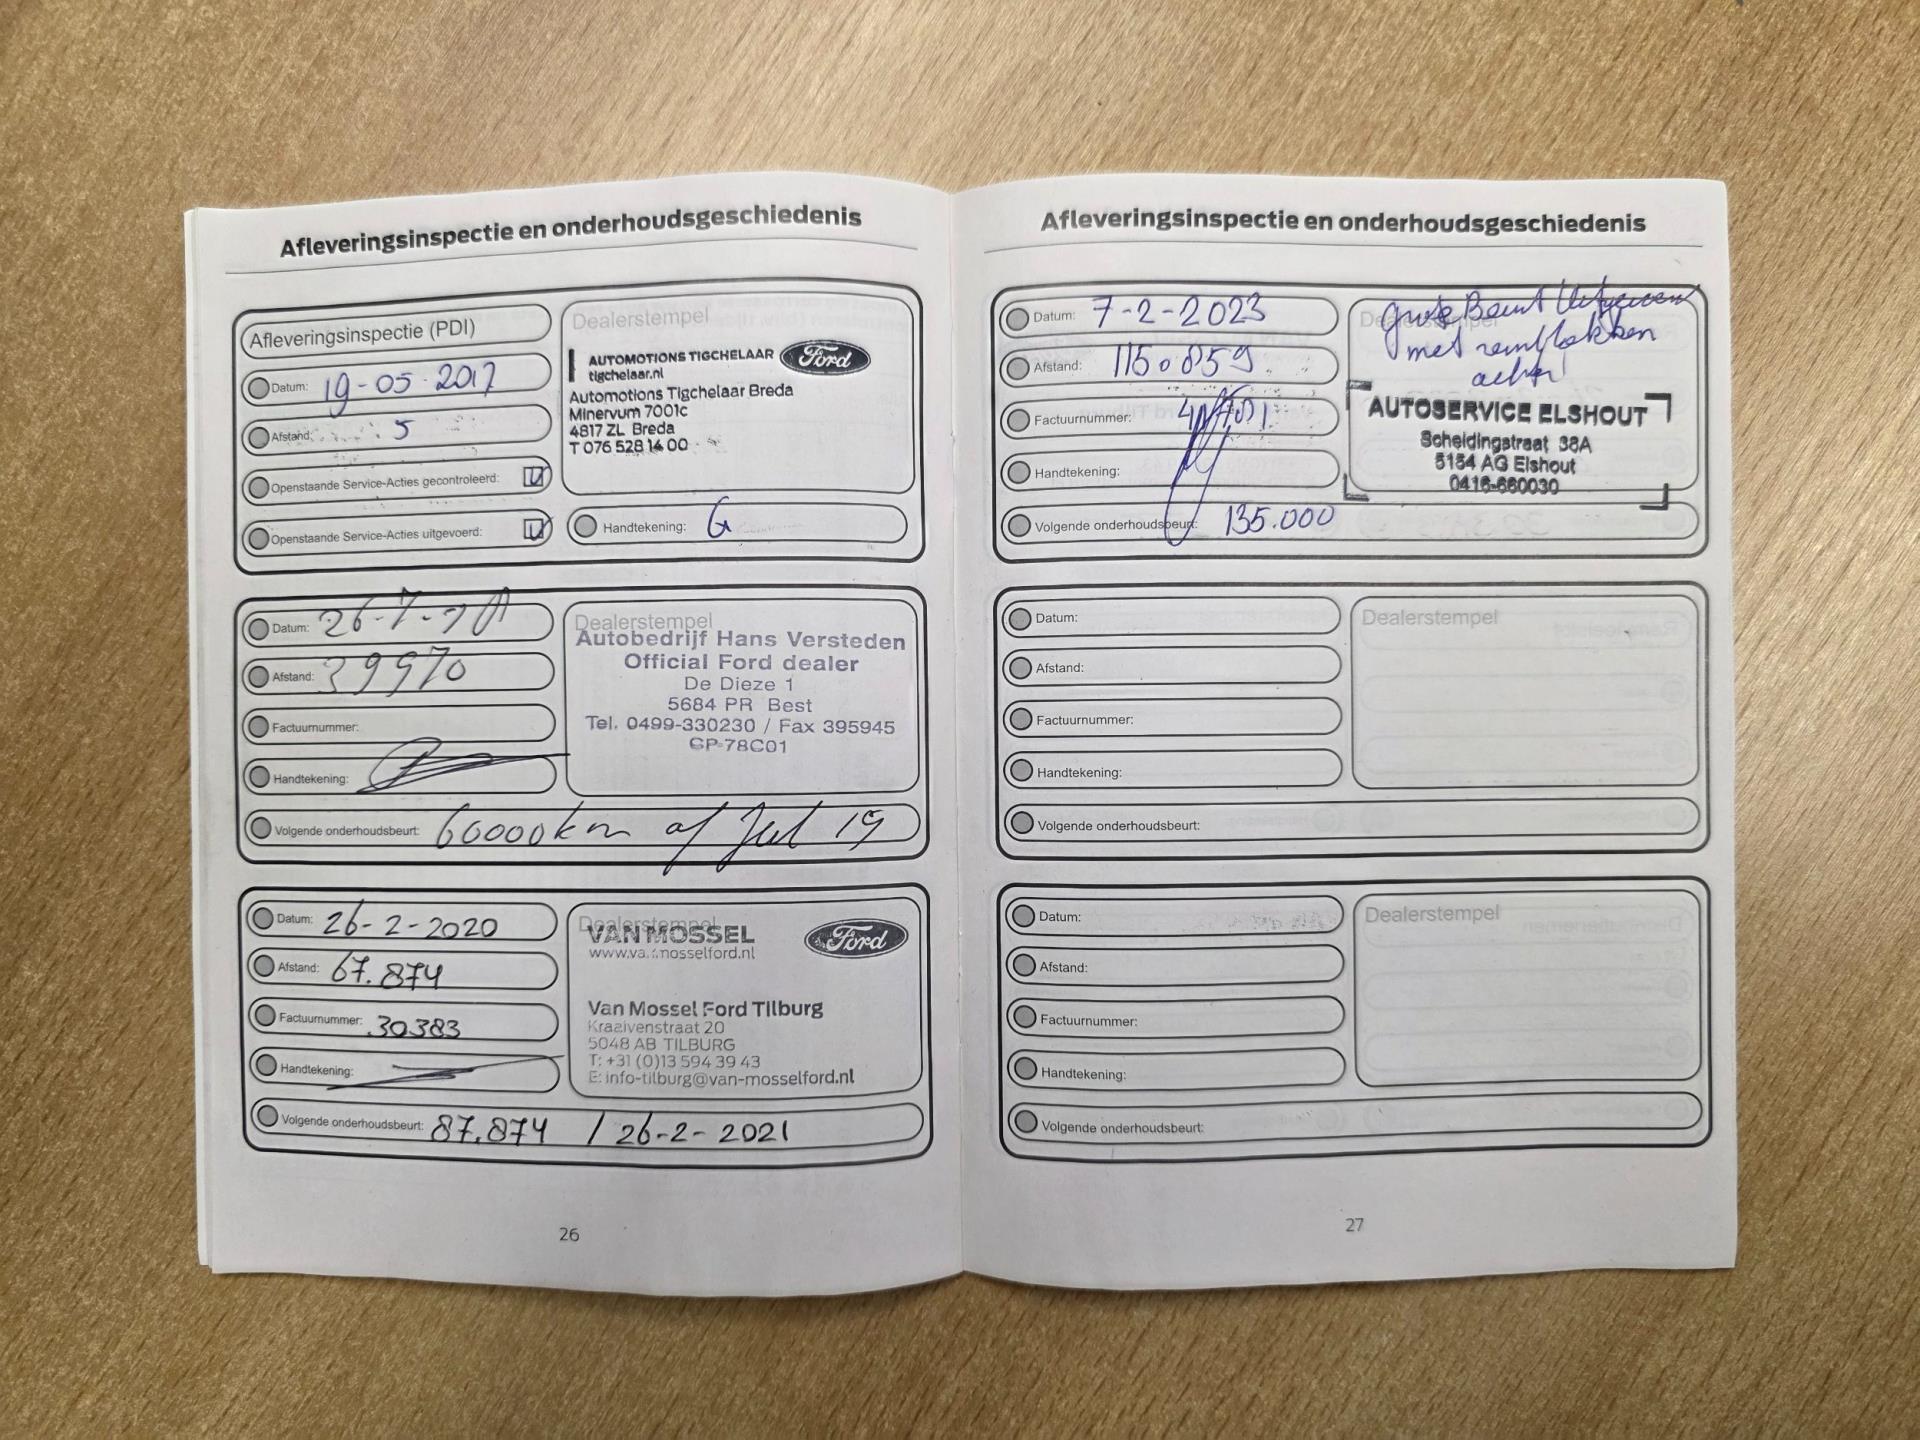 Afleveringsinspectie en onderhoudsgeschiedenis
Afleveringsinspectie (PDI)
Datum: 19-05-2017
Afstand: 5
Openstaande Service-Acties gecontroleerd:
Openstaande Service-Acties uitgevoerd:
Dealerstempel
AUTOMOTIONS TIGCHELAAR Ford
tigchelaar.nl
Automotions Tigchelaar Breda
Minervum 7001c
4817 ZL Breda
T 076 528 14 00
Handtekening: G
Datum: 26-7-
Afstand: 39970
Factuurnummer:
Handtekening:
Dealerstempel
Autobedrijf Hans Versteden
Official Ford dealer
De Dieze 1
5684 PR Best
Tel. 0499-330230 / Fax 395945
CP-78C01
Volgende onderhoudsbeurt: 60000km of Jul 19
Datum: 26-2-2020
Afstand: 67.874
Factuurnummer: 30383
Handtekening:
Dealerstempel
VAN MOSSEL Ford
www.vanmosselford.nl
Van Mossel Ford Tilburg
Kraaivenstraat 20
5048 AB TILBURG
T: +31 (0)13 594 39 43
E: info-tilburg@van-mosselford.nl
Volgende onderhoudsbeurt: 87.874 / 26-2-2021
26
Afleveringsinspectie en onderhoudsgeschiedenis
Datum: 7-2-2023
Afstand: 115.859
Factuurnummer:
Handtekening:
Dealerstempel
grote Beurt Uitgevoerd
met remblokken
achter
AUTOSERVICE ELSHOUT
Scheidingstraat 38A
5154 AG Elshout
0416-660030
Volgende onderhoudsbeurt: 135.000
Datum:
Afstand:
Factuurnummer:
Handtekening:
Dealerstempel
Volgende onderhoudsbeurt:
Datum:
Afstand:
Factuurnummer:
Handtekening:
Dealerstempel
Volgende onderhoudsbeurt:
27